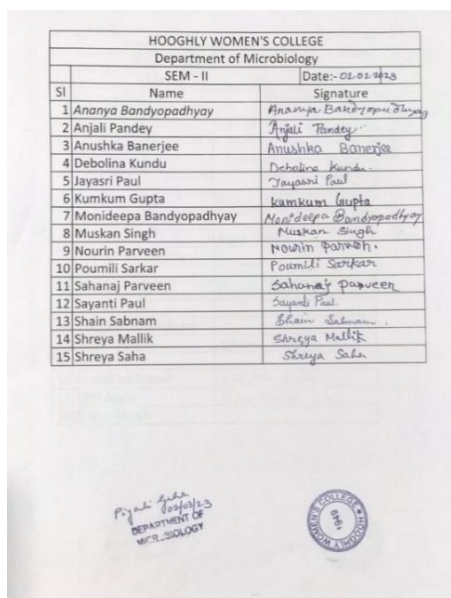 HOOGHLY WOMEN'S COLLEGE
Department of Microbiology
SEM - II Date:- 02.02.2023
Sl Name Signature
1 Ananya Bandyopadhyay Ananya Bandyopadhyay
2 Anjali Pandey Anjali Pandey
3 Anushka Banerjee Anushka Banerjee
4 Debolina Kundu Debolina Kundu.
5 Jayasri Paul Jayasri Paul
6 Kumkum Gupta Kumkum Gupta
7 Monideepa Bandyopadhyay Monideepa Bandyopadhyay
8 Muskan Singh Muskan Singh
9 Nourin Parveen Nourin Parveen.
10 Poumili Sarkar Poumili Sarkar
11 Sahanaj Parveen Sahanaj Parveen
12 Sayanti Paul Sayanti Paul.
13 Shain Sabnam Shain Sabnam.
14 Shreya Mallik Shreya Mallik
15 Shreya Saha Shreya Saha
Piyali Guha
02/03/23
DEPARTMENT OF
MICROBIOLOGY
HOOGHLY WOMEN'S COLLEGE
1949